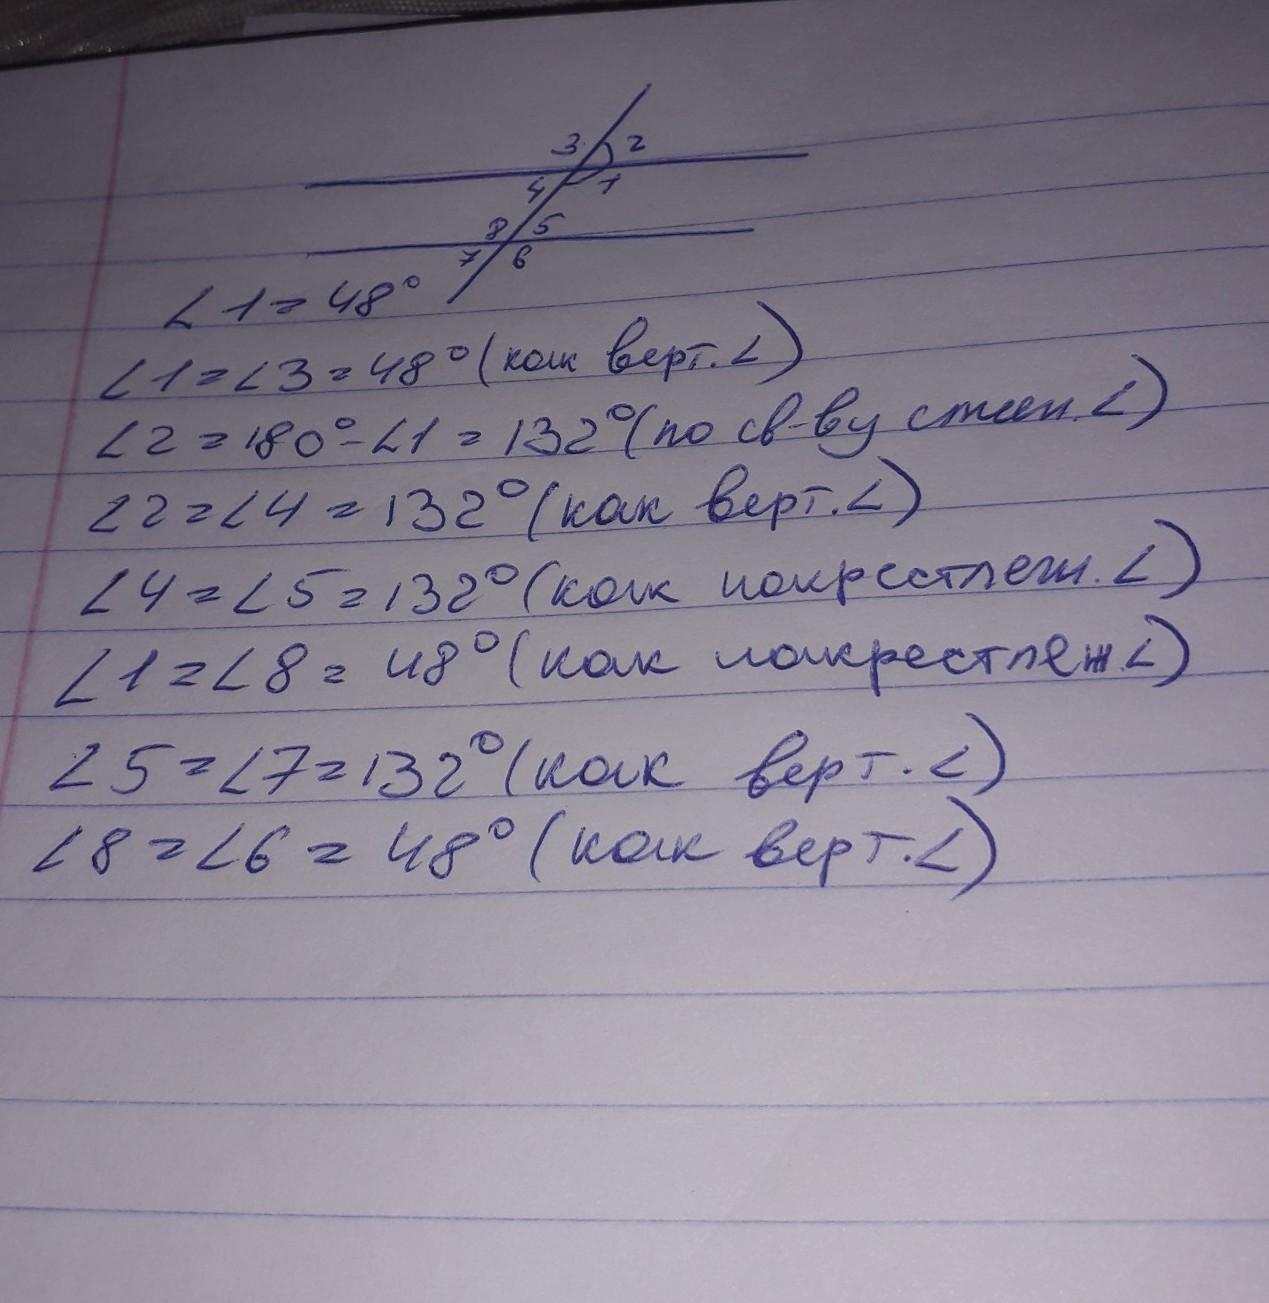 3 2
4 1
8 5
7 6
∠1=48°
∠1=∠3=48° (как верт.∠)
∠2=180°-∠1=132° (по св-ву смеж.∠)
∠2=∠4=132° (как верт.∠)
∠4=∠5=132° (как накрестлеж.∠)
∠1=∠8=48° (как накрестлеж.∠)
∠5=∠7=132° (как верт.∠)
∠8=∠6=48° (как верт.∠)